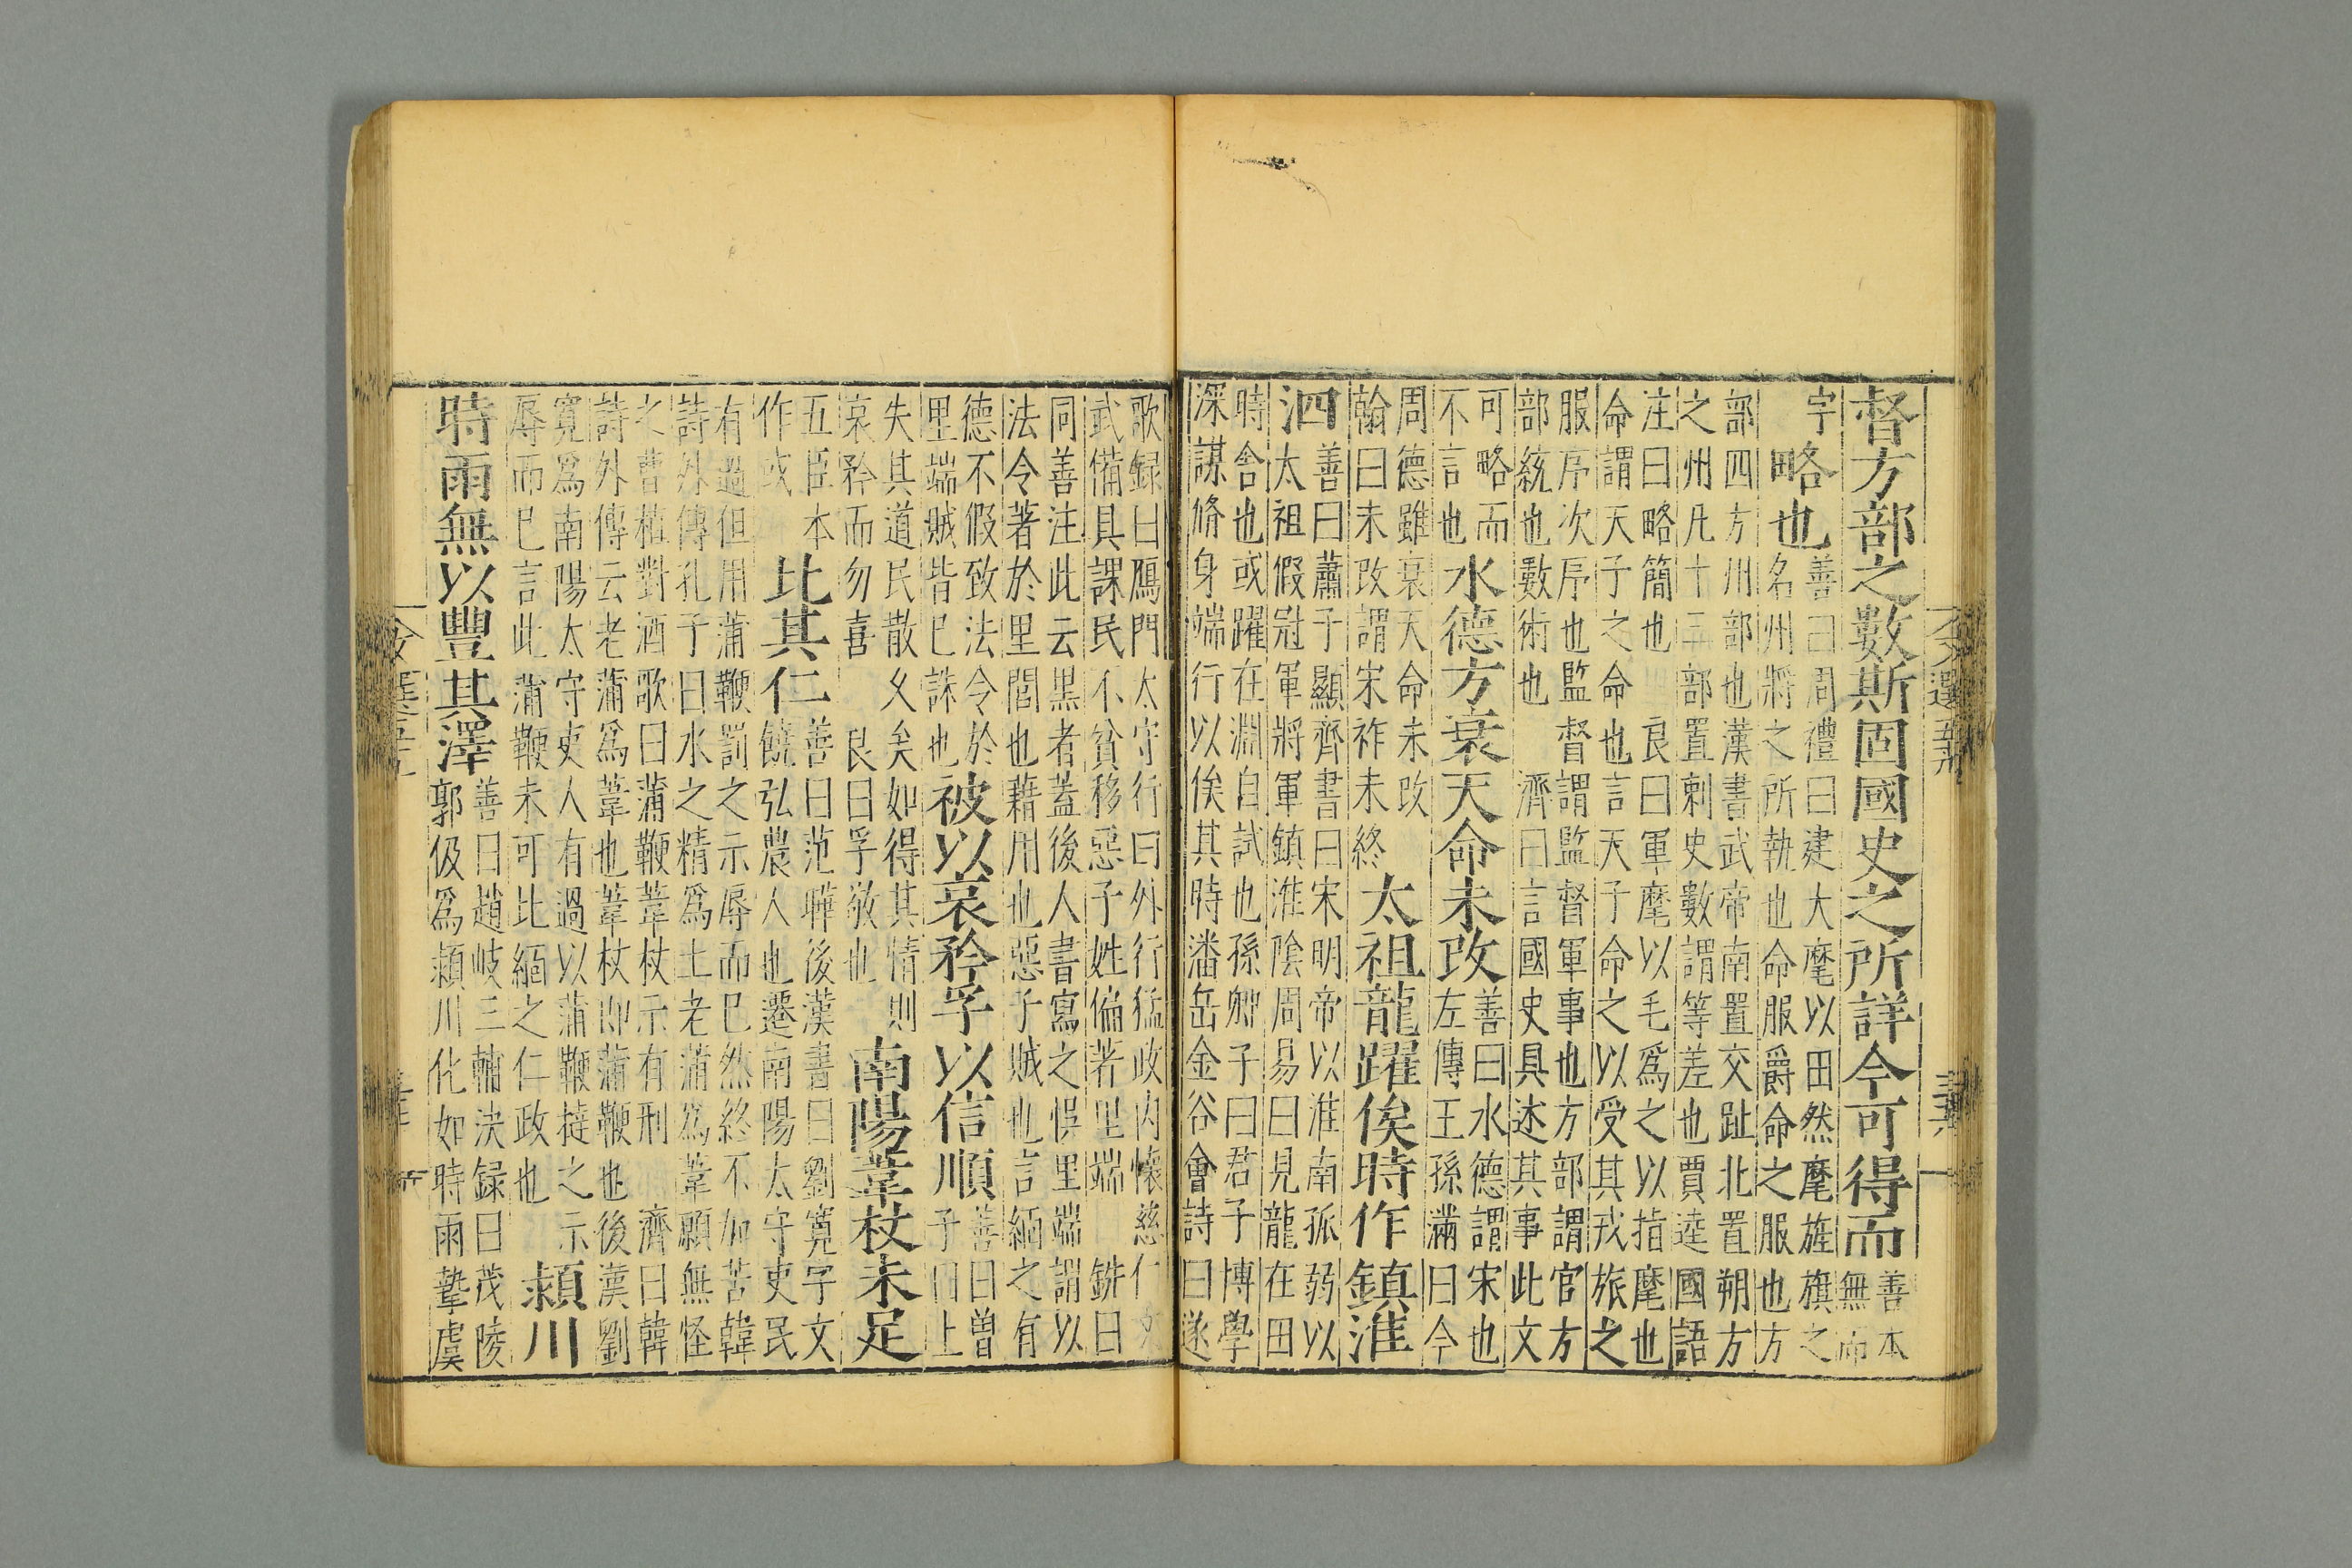 督方部之數斯固國史之所詳今可得而
善本
無而
字
略也
善曰周禮曰建大麾以田然麾旌旗之
名州將之所執也命服爵命之服也方
部四方州部也漢書武帝南置交趾北置朔方
之州凡十三部置刺史數謂等差也賈逵國語
注曰略簡也　良曰軍麾以毛爲之以指麾也
命謂天子之命也言天子命之以受其戎旅之
服序次序也監督謂監督軍事也方部謂官方
部統也數術也　濟曰言國史具述其事此文
可略而
不言也
水德方衰天命未改
善曰水德謂宋也
左傳王孫滿曰今
周德雖衰天命未改
翰曰未改謂宋祚未終
太祖龍躍俟時作鎮淮
泗
善曰蕭子顯齊書曰宋明帝以淮南孤弱以
太祖假冠軍將軍鎮淮陰周易曰見龍在田
時舍也或躍在淵自試也孫卿子曰君子博學
深謀脩身端行以俟其時潘岳金谷會詩曰遂
歌録曰鴈門太守行曰外行猛政内懷慈仁文
武備具課民不貧移惡子姓偏著里端　銑曰
同善注此云黑者蓋後人書寫之悮里端謂以
法令著於里閭也藉用也惡子賊也言緬之有
德不假致法令於
里端賊皆已誅也
被以哀矜孚以信順
善曰曽
子曰上
失其道民散乆矣如得其情則
哀矜而勿喜　良曰孚敬也
南陽葦杖未足
五臣本
作或
比其仁
善曰范曄後漢書曰劉寛字文
饒弘農人也遷南陽太守吏民
有過但用蒲鞭罰之示辱而已然終不加苦韓
詩外傳孔子曰水之精爲土老蒲爲葦願無怪
之曹植對酒歌曰蒲鞭葦杖示有刑　濟曰韓
詩外傳云老蒲爲葦也葦杖即蒲鞭也後漢劉
寛爲南陽太守吏人有過以蒲鞭撻之示
辱而已言此蒲鞭未可比緬之仁政也
潁川
時雨無以豐其澤
善曰趙岐三輔決録曰茂陵
郭伋爲潁川化如時雨摯虞